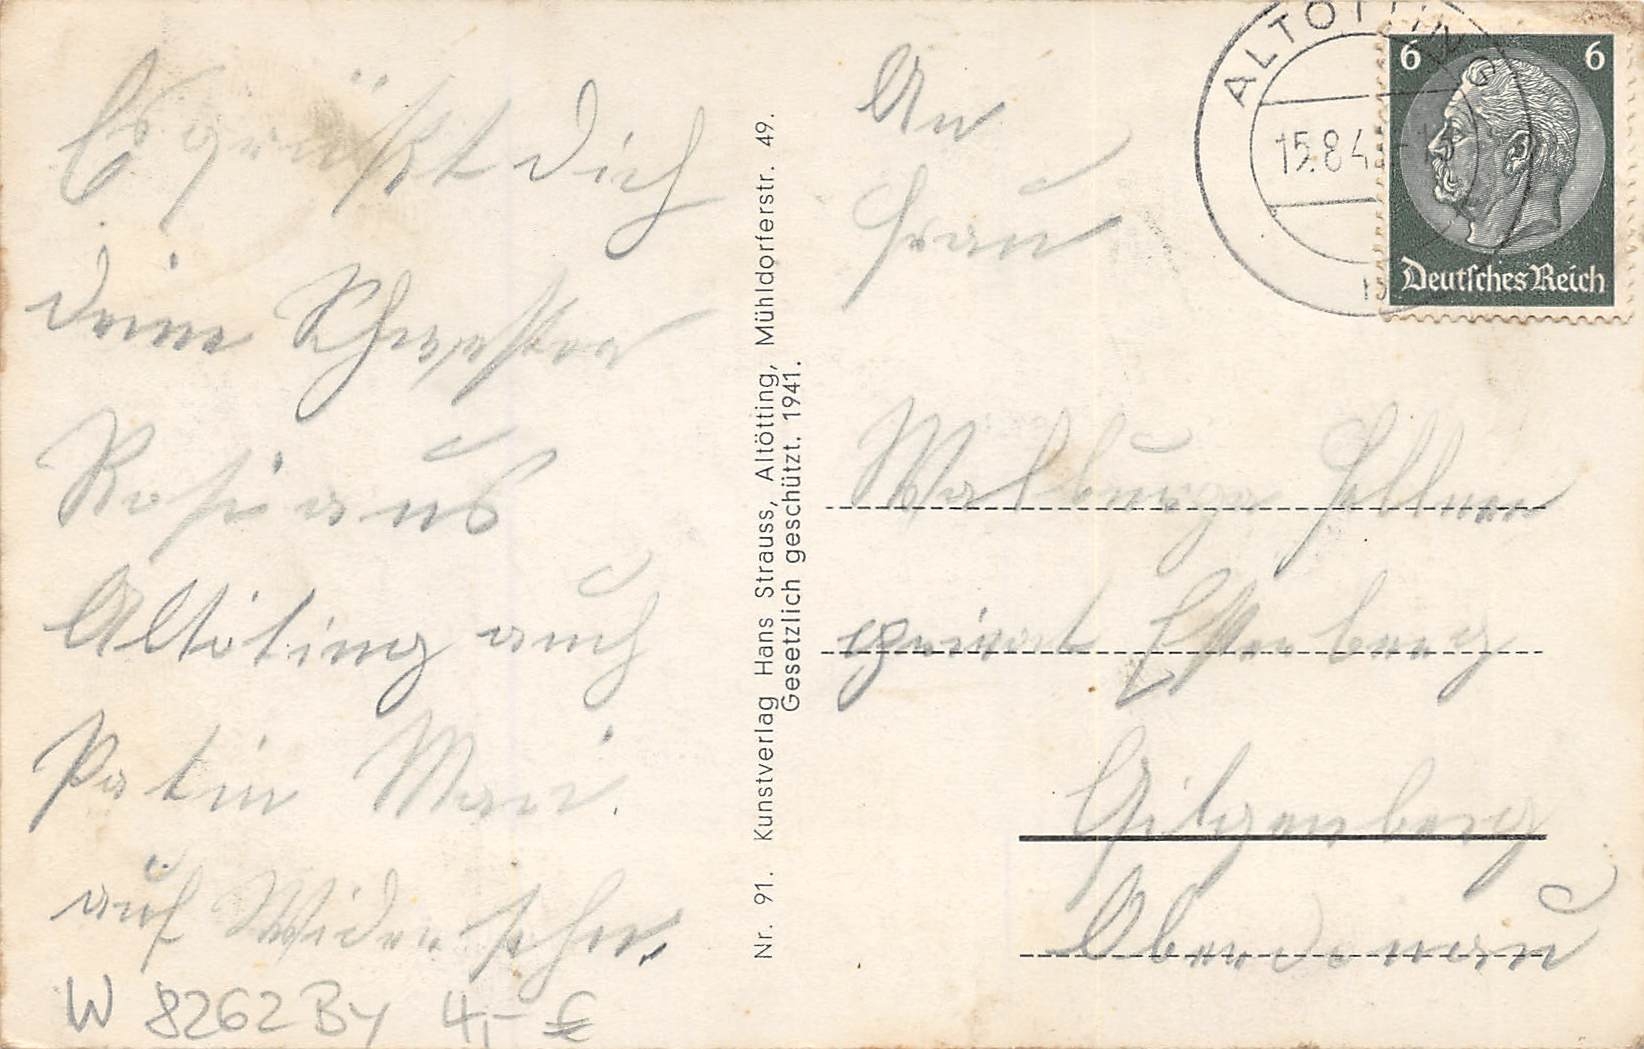 Es grüßt dich
deine Schwester
Rosi aus
Altöting auch
Patin Mari.
auf Widersehn.
W 8262 By 4,- €
Nr. 91. Kunstverlag Hans Strauss, Altötting, Mühldorferstr. 49.
Gesetzlich geschützt. 1941.
ALTÖTTING
15.8.4
6 6
Deutsches Reich
An
Frau
Walburga
Gilgenberg
Oberdonau